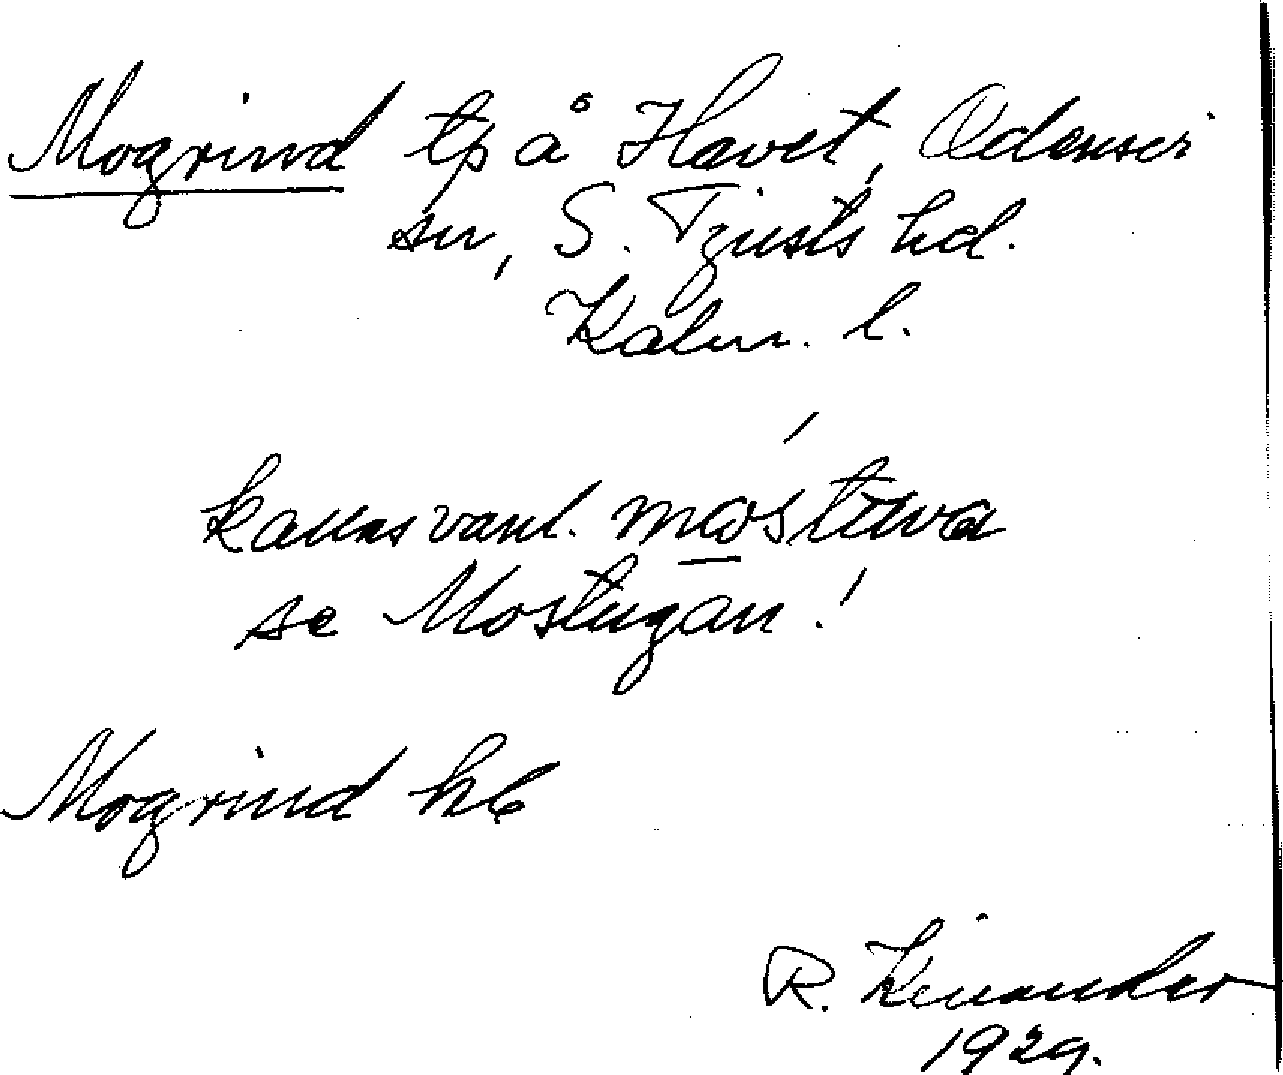 Mogrind tp å Havet, Odensvi
sn, S. Tjusts hd.
Kalm. l.
kallas vanl. mostuva
se Mostugan!
Mogrind hb
R. Kinander
1929.